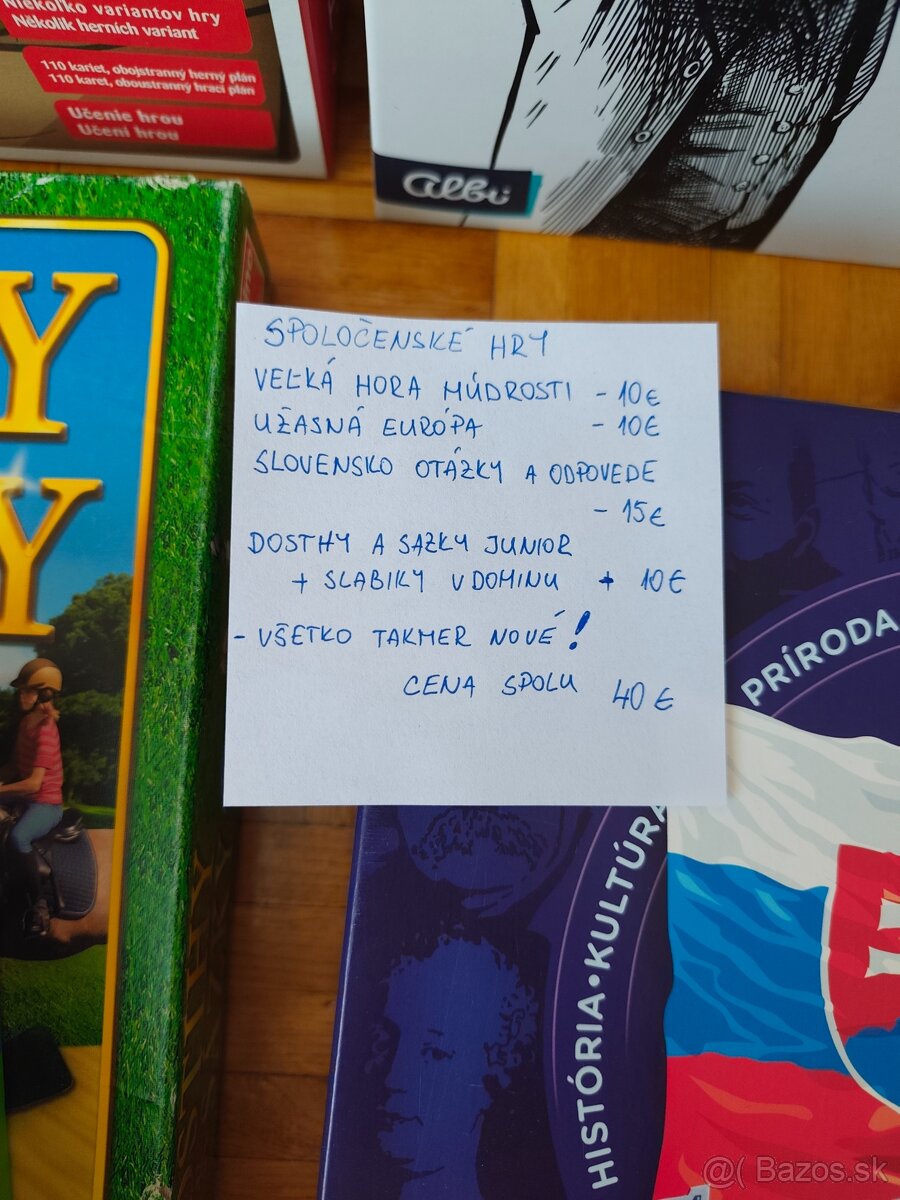 Niekoľko variantov hry
Několik herních variant
110 kariet, obojstranný herný plán
110 karet, oboustranný hrací plán
Učenie hrou
Učení hrou
albi
Y
Y
SPOLOČENSKÉ HRY
VEĽKÁ HORA MÚDROSTI - 10€
UŽASNÁ EURÓPA - 10€
SLOVENSKO OTÁZKY A ODPOVEDE
- 15€
DOSTHY A SAZKY JUNIOR
+ SLABIKY V DOMINU + 10€
- VŠETKO TAKMER NOVÉ!
CENA SPOLU 40€
PRÍRODA
HISTÓRIA•KULTÚRA
@( Bazos.sk